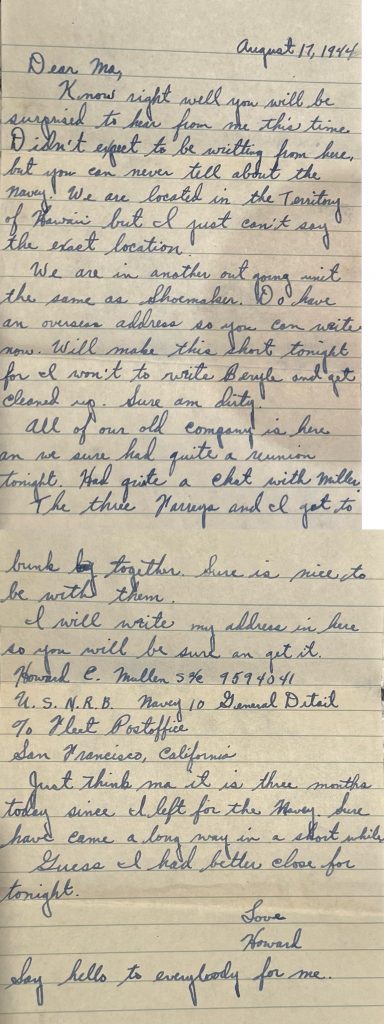 August 17, 1944
Dear Ma,
Know right well you will be
surprised to hear from me this time.
Didn't expect to be writting from here,
but you can never tell about the
Navey. We are located in the Territory
of Hawaii but I just can't say
the exact location.
We are in another out going unit
the same as Shoemaker. Do have
an overseas address so you can write
now. Will make this short tonight
for I won't to write Beryle and get
cleaned up. Sure am dirty.
All of our old company is here
an we sure had quite a reunion
tonight. Had quite a chat with Miller.
The three Harreys and I got to
bunk together. Sure is nice to
be with them.
I will write my address in here
so you will be sure an get it.
Howard C. Mullen S2/c 9594041
U. S. N. R. B. Navey 10 General Detail
℅ Fleet Postoffice
San Francisco, California
Just think ma it is three months
today since I left for the Navey. Sure
have came a long way in a short while
Guess I had better close for
tonight.
Love
Howard
Say hello to everyboody for me.